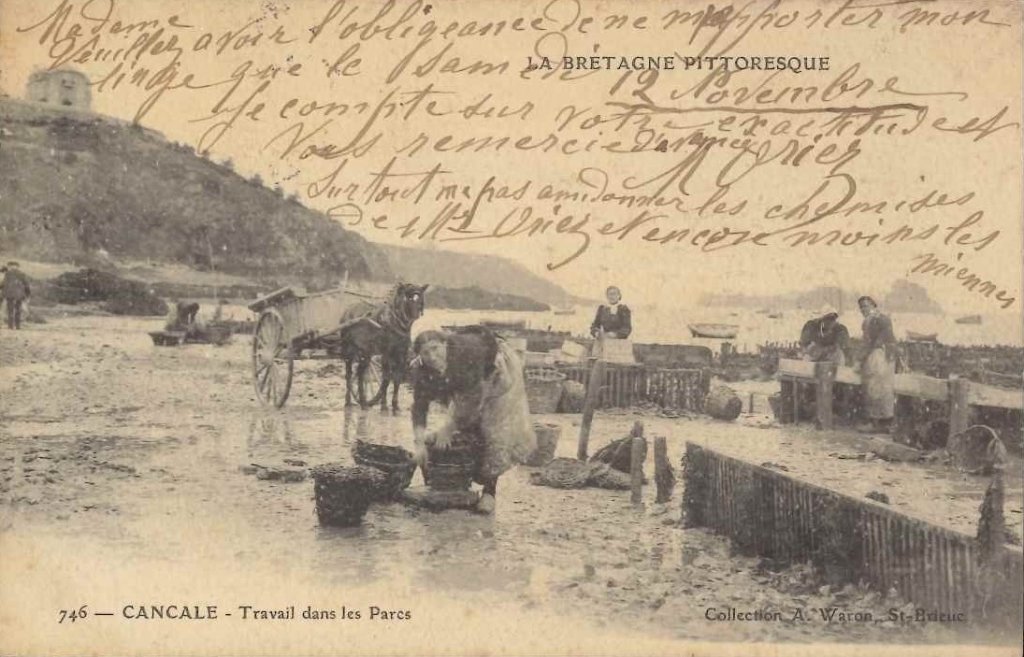 Madame
Veuillez avoir l'obligeance de ne m'apporter mon
linge que le samedi 12 Novembre
LA BRETAGNE PITTORESQUE
Je compte sur votre exactitude et
Vous remercie d'avance
Surtout ne pas amidonner les chemises
de et encore moins les
miennes
746 — CANCALE - Travail dans les Parcs
Collection A. Waron, St-Brieuc